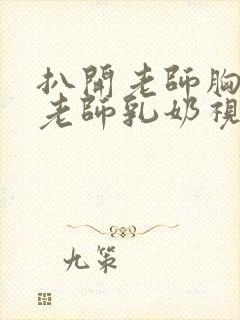 扒開老師胸
老師乳奶視
九策